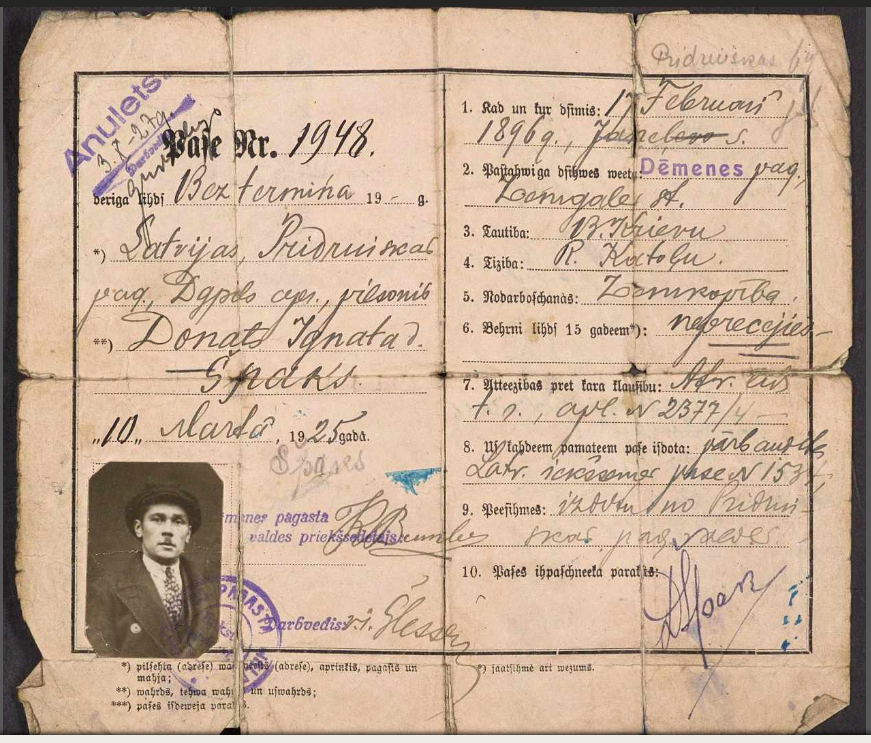 Pridruiskas
Anulets.
Pase Nr. 1948.
deriga lihds Bez termiņa 19 - g.
*) Latvijas, Pridruiskas
pag., Dgpils apr., pilsonis
**) Donats Ignata d.
Špaks.
"10" Martā, 1925 gadā.
Spaks
menes pagasta
valdes priekšsēdētājs:
Darbvedis:
*) pilsehta (adrese) wai (adrese), aprinkis, pagasts un
mahja;
**) wahrds, tehwa wahrds un uswahrds;
***) pases isdeweja paraksts.
1. Kad un kur dsimis: 17 Februarī
1896 g., s.
2. Pastahwiga dsihwes weeta: Dēmenes pag.
Zemgale st.
3. Tautiba: B. Krievu
4. Tiziba: R. Katoļu.
5. Nodarboschanàs: Zemkopība.
6. Behrni lihds 15 gadeem*): neprecējies
7. Atteezibas pret kara klausibu: Atv.
apl. N 2377/4
8. Us kahdeem pamateem pase isdota:
Latv. iekšzemes pase N
9. Peesihmes: izdota no Pridrui-
skas pag. valdes
10. Pases ihpaschneeka paraksts:
*) jaatsihmè ari wezums.